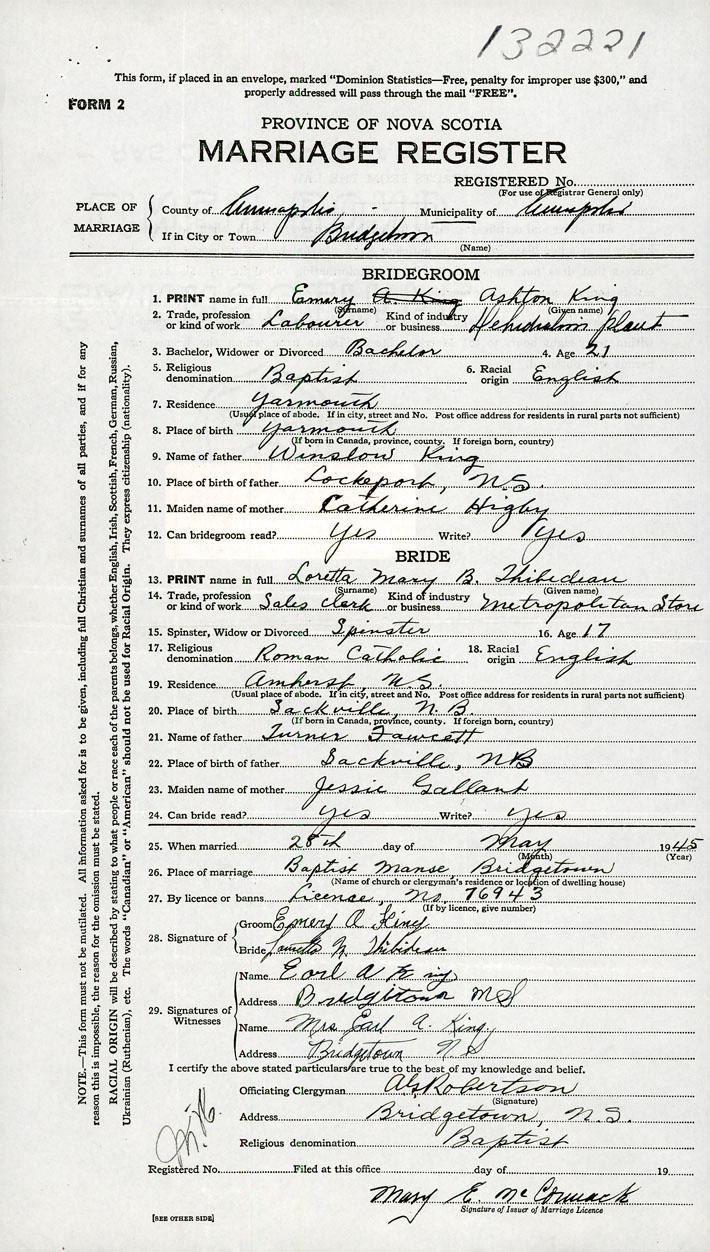 132221
This form, if placed in an envelope, marked "Dominion Statistics—Free, penalty for improper use $300," and
properly addressed will pass through the mail "FREE".
FORM 2
PROVINCE OF NOVA SCOTIA
MARRIAGE REGISTER
REGISTERED No.
(For use of Registrar General only)
PLACE OF MARRIAGE
County of Annapolis Municipality of Annapolis
If in City or Town Bridgetown
(Name)
BRIDEGROOM
1. PRINT name in full Emery A. King Ashton King
(Surname) (Given name)
2. Trade, profession or kind of work Labourer Kind of industry or business plant
3. Bachelor, Widower or Divorced Bachelor 4. Age 21
5. Religious denomination Baptist 6. Racial origin English
7. Residence Yarmouth
(Usual place of abode. If in city, street and No. Post office address for residents in rural parts not sufficient)
8. Place of birth Yarmouth
(If born in Canada, province, county. If foreign born, country)
9. Name of father Winslow King
10. Place of birth of father Lockeport, N.S.
11. Maiden name of mother Catherine Higby
12. Can bridegroom read? Yes Write? Yes
BRIDE
13. PRINT name in full Loretta Mary B. Thibideau
(Surname) (Given name)
14. Trade, profession or kind of work Sales clerk Kind of industry or business Metropolitan Store
15. Spinster, Widow or Divorced Spinster 16. Age 17
17. Religious denomination Roman Catholic 18. Racial origin English
19. Residence Amherst, N.S.
(Usual place of abode. If in city, street and No. Post office address for residents in rural parts not sufficient)
20. Place of birth Sackville, N.B.
(If born in Canada, province, county. If foreign born, country)
21. Name of father Turner Fawcett
22. Place of birth of father Sackville, NB
23. Maiden name of mother Jessie Gallant
24. Can bride read? yes Write? yes
25. When married 28th day of May 1945
(Month) (Year)
26. Place of marriage Baptist Manse, Bridgetown
(Name of church or clergyman's residence or location of dwelling house)
27. By licence or banns License, No. 76943
(If by licence, give number)
28. Signature of
Groom Emery A King
Bride Loretta M Thibideau
29. Signatures of Witnesses
Name Earl A King
Address Bridgetown NS
Name Mrs Earl A. King
Address Bridgetown N S
I certify the above stated particulars are true to the best of my knowledge and belief.
Officiating Clergyman Robertson
(Signature)
Address Bridgetown, N.S.
Religious denomination Baptist
Registered No. Filed at this office day of 19
Mary E. McCormack
Signature of Issuer of Marriage Licence
[SEE OTHER SIDE]
NOTE.—This form must not be mutilated. All information asked for is to be given, including full Christian and surnames of all parties, and if for any
reason this is impossible, the reason for the omission must be stated.
RACIAL ORIGIN will be described by stating to what people or race each of the parents belongs, whether English, Irish, Scottish, French, German, Russian,
Ukrainian (Ruthenian), etc. The words "Canadian" or "American" should not be used for Racial Origin. They express citizenship (nationality).